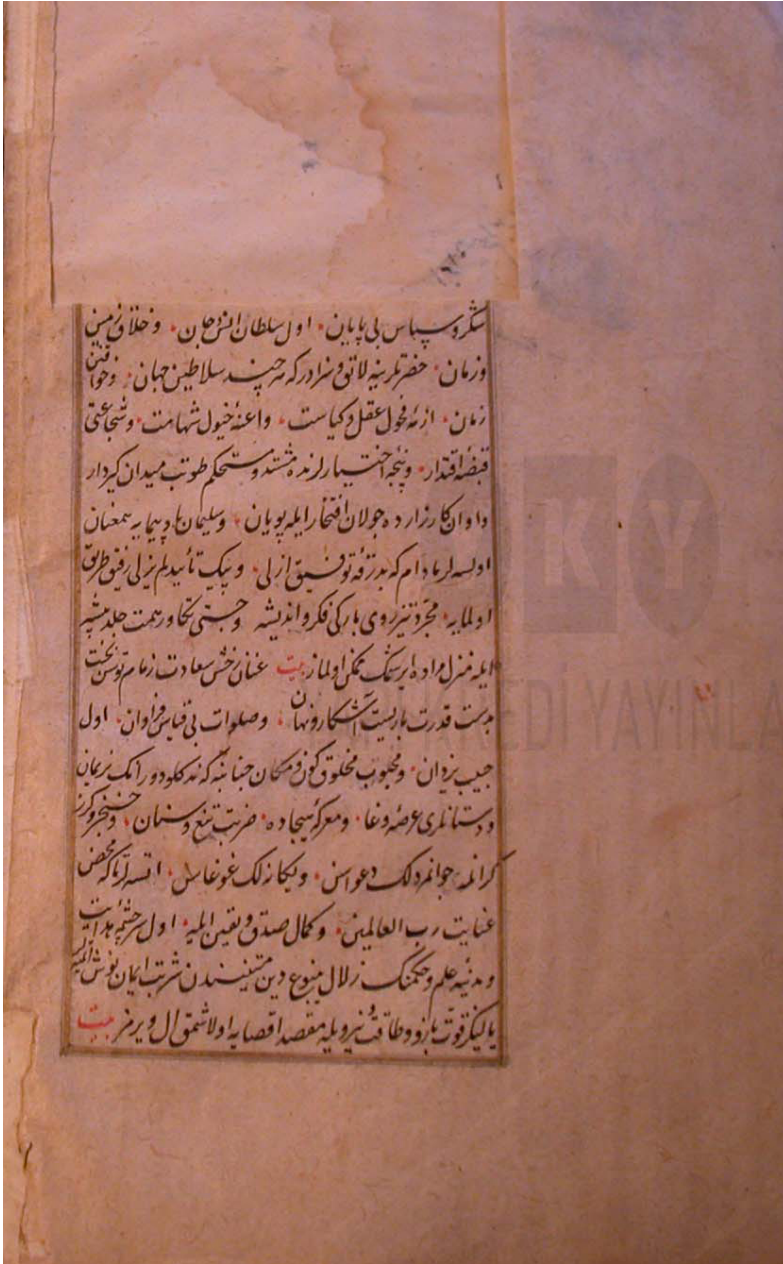 شكر و سپاس بی پایان اول سلطان انس و جان و خلاق زمین
و زمان حضرتلرینه لائق و سزادر که هر چند سلاطین جهان و خواقین
زمان ازمهٔ فحول عقل و کیاست و اعنهٔ خیول شهامت و شجاعتی
قبضهٔ اقتدار و پنجهٔ اختیارلرنده مشتد و مستحکم طوتب میدان کیردار
و اوان کارزارده جولان افتخار ایله پویان و سلیمان باد پیما به همعنان
اولسه لر مادام که بدرقهٔ توفیق ازلی و پیك تأیید لم یزلی رفیق طریق
اولمایه مجرد تیزروی بارکی فکر و اندیشه و چستی تکاور همت جلد پیشه
ایله منزل مراده ایرشمك ممکن اولماز بیت عنان رخش سعادت زمام توسن بخت
بدست قدرت باریست آشکار و نهان و صلوات بی قیاس فراوان اول
حبیب یزدان و محبوب مخلوق کون و مکان جنابنه که دورانك نریمان
و دستانلری عرصهٔ وغا و معرکهٔ هیجاده ضربت تیغ و سنان و خنجر و کرز
کرانله جوانمردلك دعواسن و یکانه لك غوغاسن ایتسه لر تا که محض
عنایت رب العالمین و کمال صدق و یقین ایله اول سرچشمهٔ هدایت
و مدینهٔ علم و حکمتك زلال ینبوع دین متینندن شربت ایمان نوش ایتمیه لر
یالیکز قوت بازو و طاقت و نیرو یله مقصد اقصایه اولاشمق ال ویرمز بیت
KY
KREDİ YAYINLA